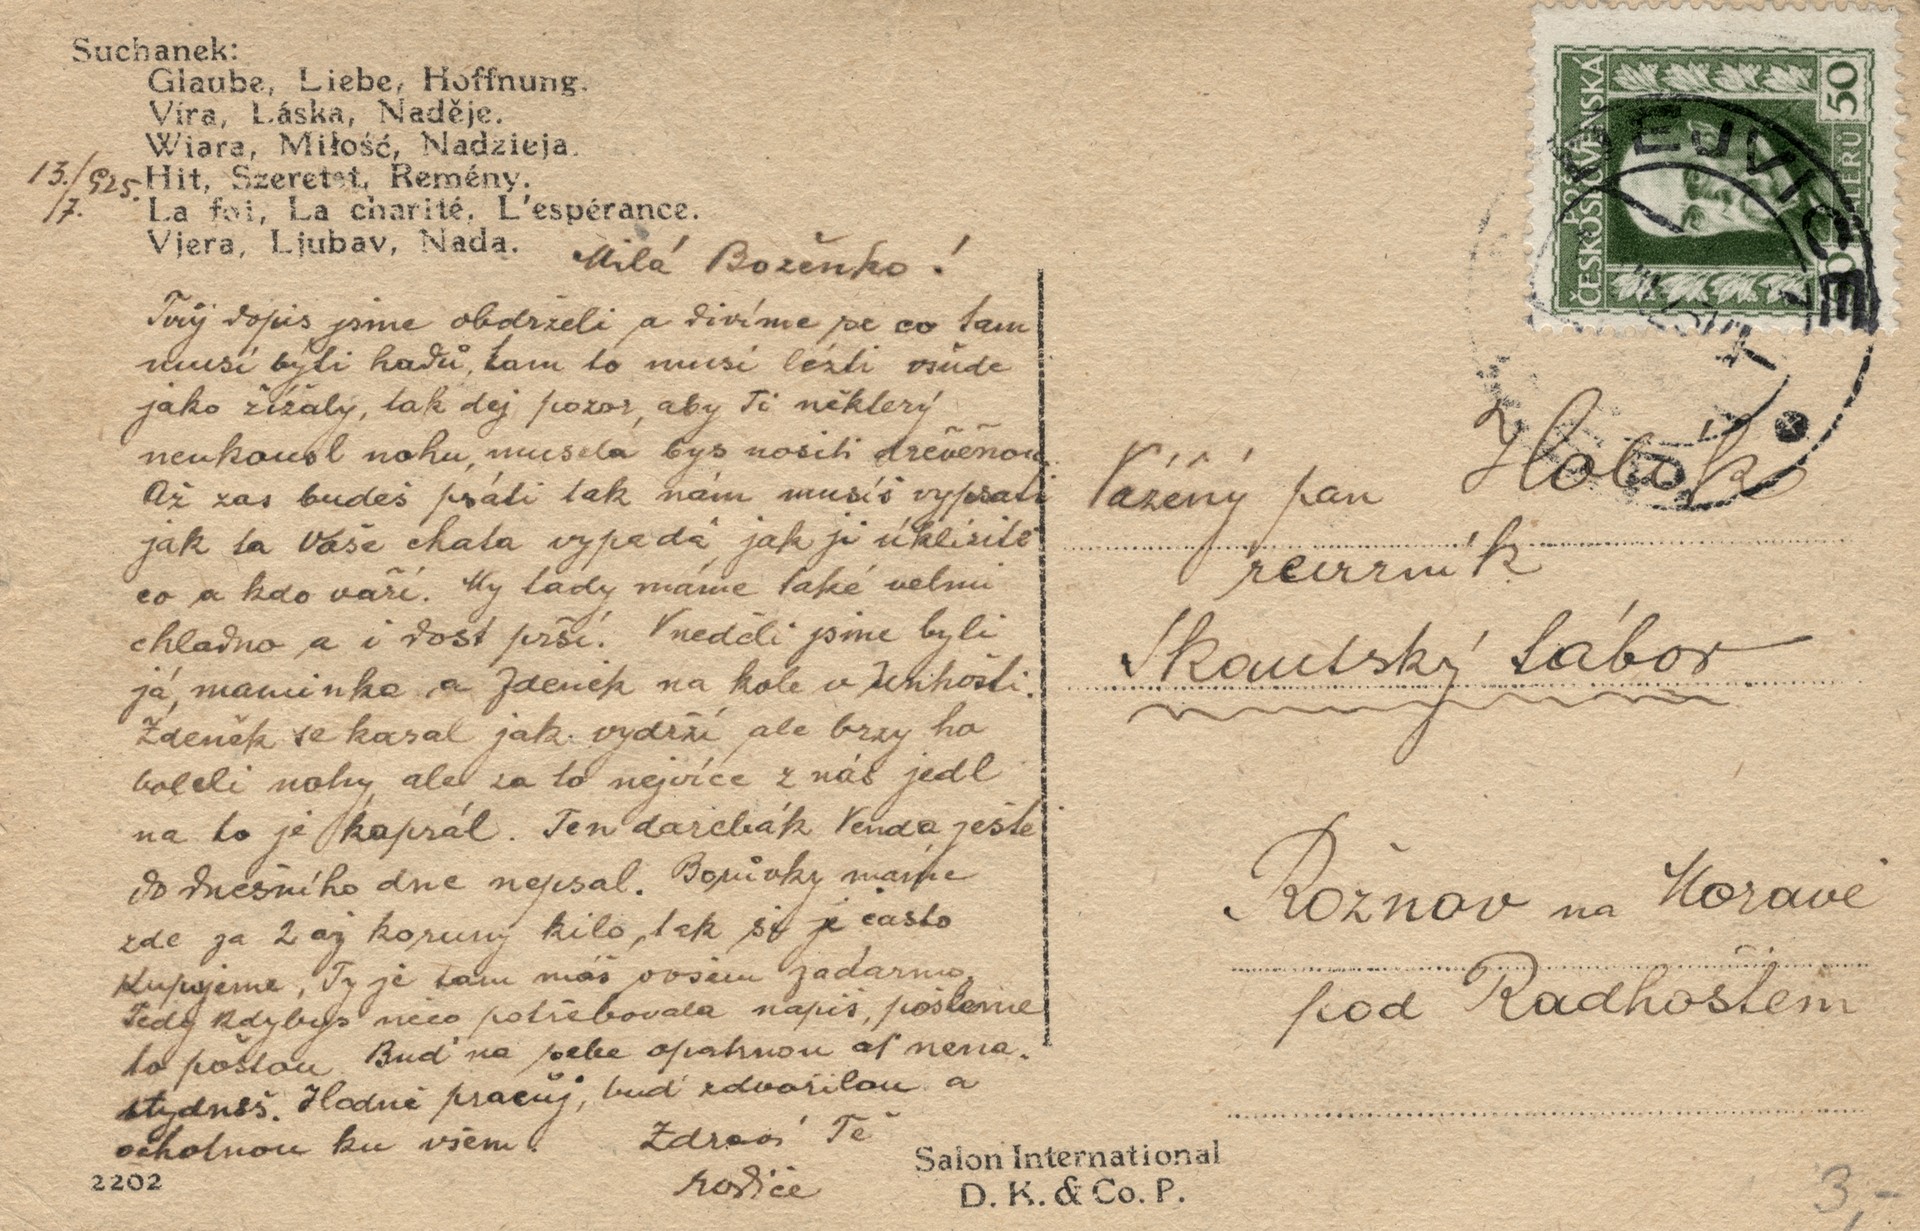 Suchanek:
Glaube, Liebe, Hoffnung.
Víra, Láska, Naděje.
Wiara, Miłość, Nadzieja.
Hit, Szeretet, Remény.
La foi, La charité, L'espérance.
Vjera, Ljubav, Nada.
13./7. 925.
Milá Boženko!
Tvůj dopis jsme obdrželi a divíme se co tam
musí býti hadů, tam to musí lézti všude
jako žížaly, tak dej pozor, aby Ti některý
neukousl nohu, musela bys nositi dřevěnou
Až zas budeš psáti tak nám musíš vypsati
jak ta Vaše chata vypadá, jak ji uklízíte
co a kdo vaří. My tady máme také velmi
chladno a i dost prší. V neděli jsme byli
já, maminka a Zdeněk na kole v Unhošti.
Zdeněk se kasal jak vydrží, ale brzy ho
boleli nohy, ale za to nejvíce z nás jedl
na to je kaprál. Ten darebák Venda ješte
do dnešního dne nepsal. Borůvky máme
zde za 2 až koruny kilo, tak si je často
kupujeme, Ty je tam máš ovšem zadarmo.
Tedy kdybys něco potřebovala napiš, pošleme
to poštou. Buď na sebe opatrnou ať nena-
stydneš. Hodně pracuj, buď zdvořilou a
ochotnou ku všem. Zdraví Tě
rodiče
2202
Salon International
D. K. & Co. P.
POŠTA
ČESKOSLOVENSKÁ
50
HALÉŘŮ
DEJVICE
Vážený pan
Skautský tábor
Rožnov na Moravě
pod Radhoštem
3,-